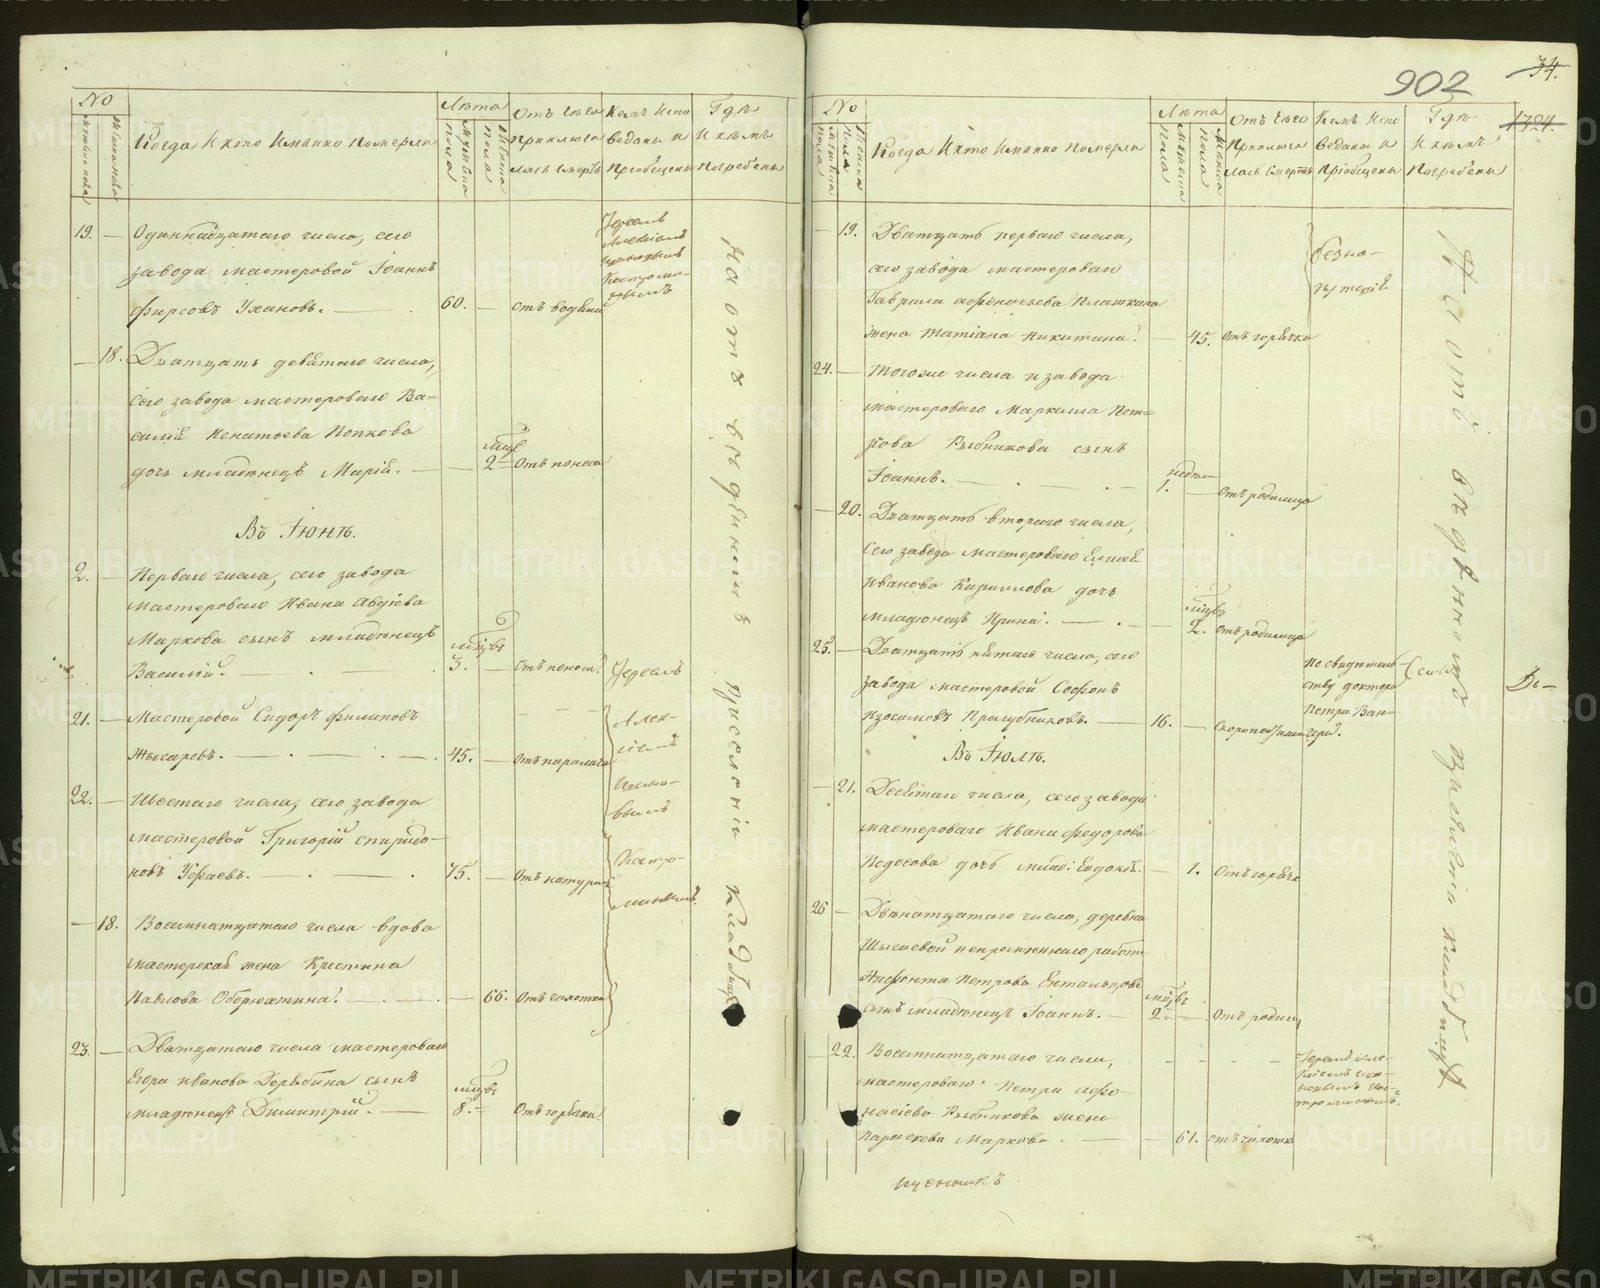 902
34.
1324.
No
мужеска пола
женска пола
Когда И кто Именно Померли
Лѣта
Мужеска пола
Женска пола
Отъ Чего
Приключи
лась Смерть
Кемъ Испо
веданы и
Пріобщены
Гдѣ
И кѣмъ
Погребены
19. — Одиннадцатаго числа, сего
завода мастеровой Іоаннъ
Фирсовъ Ухановъ. — 60. — отъ водяной
Іереемъ
Алексіемъ
— 18. Дватцать девятаго числа,
сего завода мастероваго Ва-
силія Игнатьева Попкова
дочь младенецъ Марія. — 2 Отъ поноса
Въ Іюнѣ.
2. — Перваго числа, сего завода
мастероваго Ивана Авдіева
Маркова сынъ младенецъ
Василій. — 3. — Отъ поноса.
Іереемъ
Алек-
сіемъ
21. — Мастеровой Сидоръ Филиповъ
Жигаревъ. — 45. — Отъ паралича
22. — Шестаго числа, сего завода
мастеровой Григорій Спиридо-
новъ Уфаевъ. — 75. — Отъ натуры
— 18. Восемнатцатаго числа вдова
мастерская жена Крестина
Павлова Оберюхтина. — 66. Отъ чахотки
23. — Дватцатаго числа мастероваго
Егора Иванова Дерябина сынъ
младенецъ Димитрій. — 8. Отъ горячки
На отъ веденномъ приселеніи кладбище
No
Когда И кто Именно Померли
Лѣта
Мужеска пола
Женска пола
Отъ Чего
Приключи
лась Смерть
Кемъ Испо
веданы и
Пріобщены
Гдѣ
И кѣмъ
Погребены
— 19. Дватцать перваго числа,
сего завода мастероваго
Гаврила Афонасьева Платкина
жена Татіана Никитина. — 45. Отъ горячки
24. — Тогоже числа и завода
мастероваго Маркела Пет-
рова Рыбникова сынъ
Іоаннъ. — 1. — Отъ родимца
— 20. Дватцать втораго числа,
сего завода мастероваго Елисея
Иванова Кирилова дочь
младенецъ Ирина. — 2. Отъ родимца
25. — Дватцать пятаго числа, сего
завода мастеровой Софонъ
Изосимовъ Прагубниковъ. — 16. — Скоропостижно
По свидѣтель-
ству доктора
Петра Ван-
гера.
Въ Іюлѣ.
— 21. Девятаго числа, сего завода
мастероваго Ивана Федорова
Федосова дочь млад: Евдокія. — 1. Отъ горячки
26 — Двѣнатцатаго числа, деревни
Шигаевой непременнаго работн.
Анфонта Петрова Ентальцова
сынъ младенецъ Іоаннъ. — 2. — Отъ родим.
— 22. Восемнатцатаго числа,
мастероваго Петра Афо-
насіева Рыбникова жена
Параскева Маркова. — 61. Отъ чахотки
На отъ веденномъ приселеніи кладбищѣ
METRIKI.GASO-URAL.RU